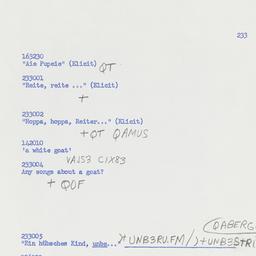 233
163230
"Aia Pupeia" (Elicit) QT
233001
"Reite, reite ..." (Elicit)
+
233002
"Hoppa, hoppa, Reiter..." (Elicit)
+QT QAMUS
142010
'a white goat'
VA153 C1X83
233004
Any songs about a goat?
+ QOF
(DABERG
233005
"Ein hübsches Kind, unbe..." )+ UNB3RU.FM/)+UNB3STRI